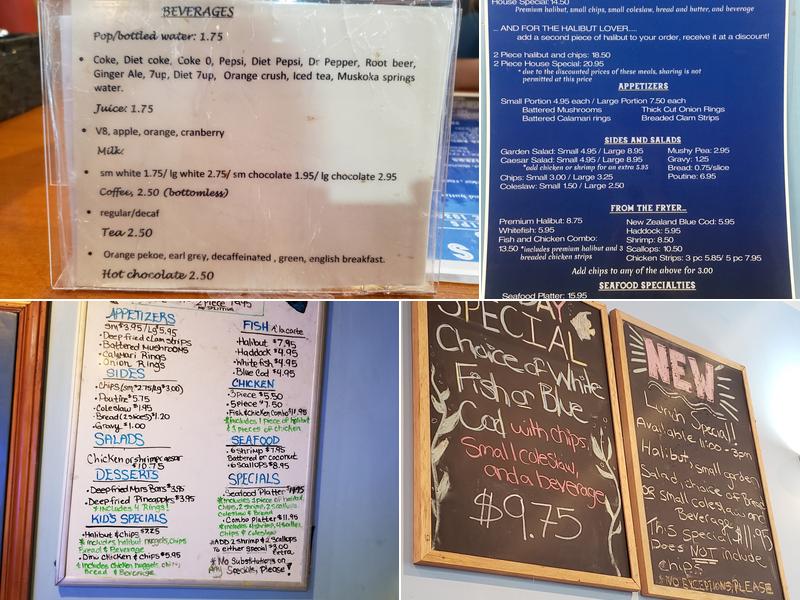 BEVERAGES
Pop/bottled water: 1.75
• Coke, Diet coke, Coke 0, Pepsi, Diet Pepsi, Dr Pepper, Root beer,
Ginger Ale, 7up, Diet 7up, Orange crush, Iced tea, Muskoka springs
water.
Juice: 1.75
• V8, apple, orange, cranberry
Milk:
• sm white 1.75/ lg white 2.75/ sm chocolate 1.95/ lg chocolate 2.95
Coffee, 2.50 (bottomless)
• regular/decaf
Tea 2.50
• Orange pekoe, earl grey, decaffeinated , green, english breakfast.
Hot chocolate 2.50
House Special: 14.50
Premium halibut, small chips, small coleslaw, bread and butter, and beverage
... AND FOR THE HALIBUT LOVER....
add a second piece of halibut to your order, receive it at a discount!
2 Piece halibut and chips: 18.50
2 Piece House Special: 20.95
*due to the discounted prices of these meals, sharing is not
permitted at this price
APPETIZERS
Small Portion 4.95 each / Large Portion 7.50 each
Battered Mushrooms Thick Cut Onion Rings
Battered Calamari rings Breaded Clam Strips
SIDES AND SALADS
Garden Salad: Small 4.95 / Large 8.95 Mushy Pea: 2.95
Caesar Salad: Small 4.95 / Large 8.95 Gravy: 1.25
*add chicken or shrimp for an extra 5.95 Bread: 0.75/slice
Chips: Small 3.00 / Large 3.25 Poutine: 6.95
Coleslaw: Small 1.50 / Large 2.50
FROM THE FRYER..
Premium Halibut: 8.75 New Zealand Blue Cod: 5.95
Whitefish: 5.95 Haddock: 5.95
Fish and Chicken Combo: Shrimp: 8.50
13.50 *includes premium halibut and 3 Scallops: 10.50
breaded chicken strips Chicken Strips: 3 pc 5.85/ 5 pc 7.95
Add chips to any of the above for 3.00
SEAFOOD SPECIALTIES
Seafood Platter: 15.95
2 piece
APPETIZERS
Sm $3.95/Lg $5.95
• Deep fried clam strips
• Battered Mushrooms
• Calamari Rings
• Onion Rings
SIDES
• Chips (sm $2.75/Lg $3.00)
• Poutine $5.75
• Coleslaw $1.95
• Bread (2 slices) $1.20
• Gravy $1.00
SALADS
Chicken or shrimp caesar
$10.75
DESSERTS
• Deep fried Mars Bars $3.95
• Deep fried Pineapple $3.95
* INCLUDES 4 Rings!
KID'S SPECIALS
• Halibut & chips $7.25
* includes halibut nuggets, chips
Bread & Beverage
• Dino chicken & chips $5.95
* Includes chicken nuggets, chips,
Bread & Beverage
FISH A la carte
• Halibut $7.95
• Haddock $4.95
• White fish $4.95
• Blue Cod $4.95
CHICKEN
• 3 piece $5.50
• 5 piece $7.50
• Fish & chicken combo $11.95
* includes 1 piece of halibut
& 3 pieces of chicken
SEAFOOD
• 6 shrimp $7.95
Battered or coconut
• 6 scallops $8.95
SPECIALS
Seafood Platter
* includes 1 piece of halibut,
chips, 2 shrimp, 2 scallops,
coleslaw & Bread
• Combo platter $11.95
& coleslaw
*ADD 2 shrimp & 2 scallops
To either special $3.00
Extra
* No Substitutions on
Any Specials, Please!
SPECIAL
Choice of White
Fish or Blue
Cod with chips,
Small coleslaw,
and a beverage
$9.75
NEW
Lunch Special!
Available 11:00 - 3pm
Halibut, small garden
Salad, choice of Bread
or small coleslaw and
Beverage $11.95
This special
Does NOT include
chips
*NO EXCEPTIONS, PLEASE